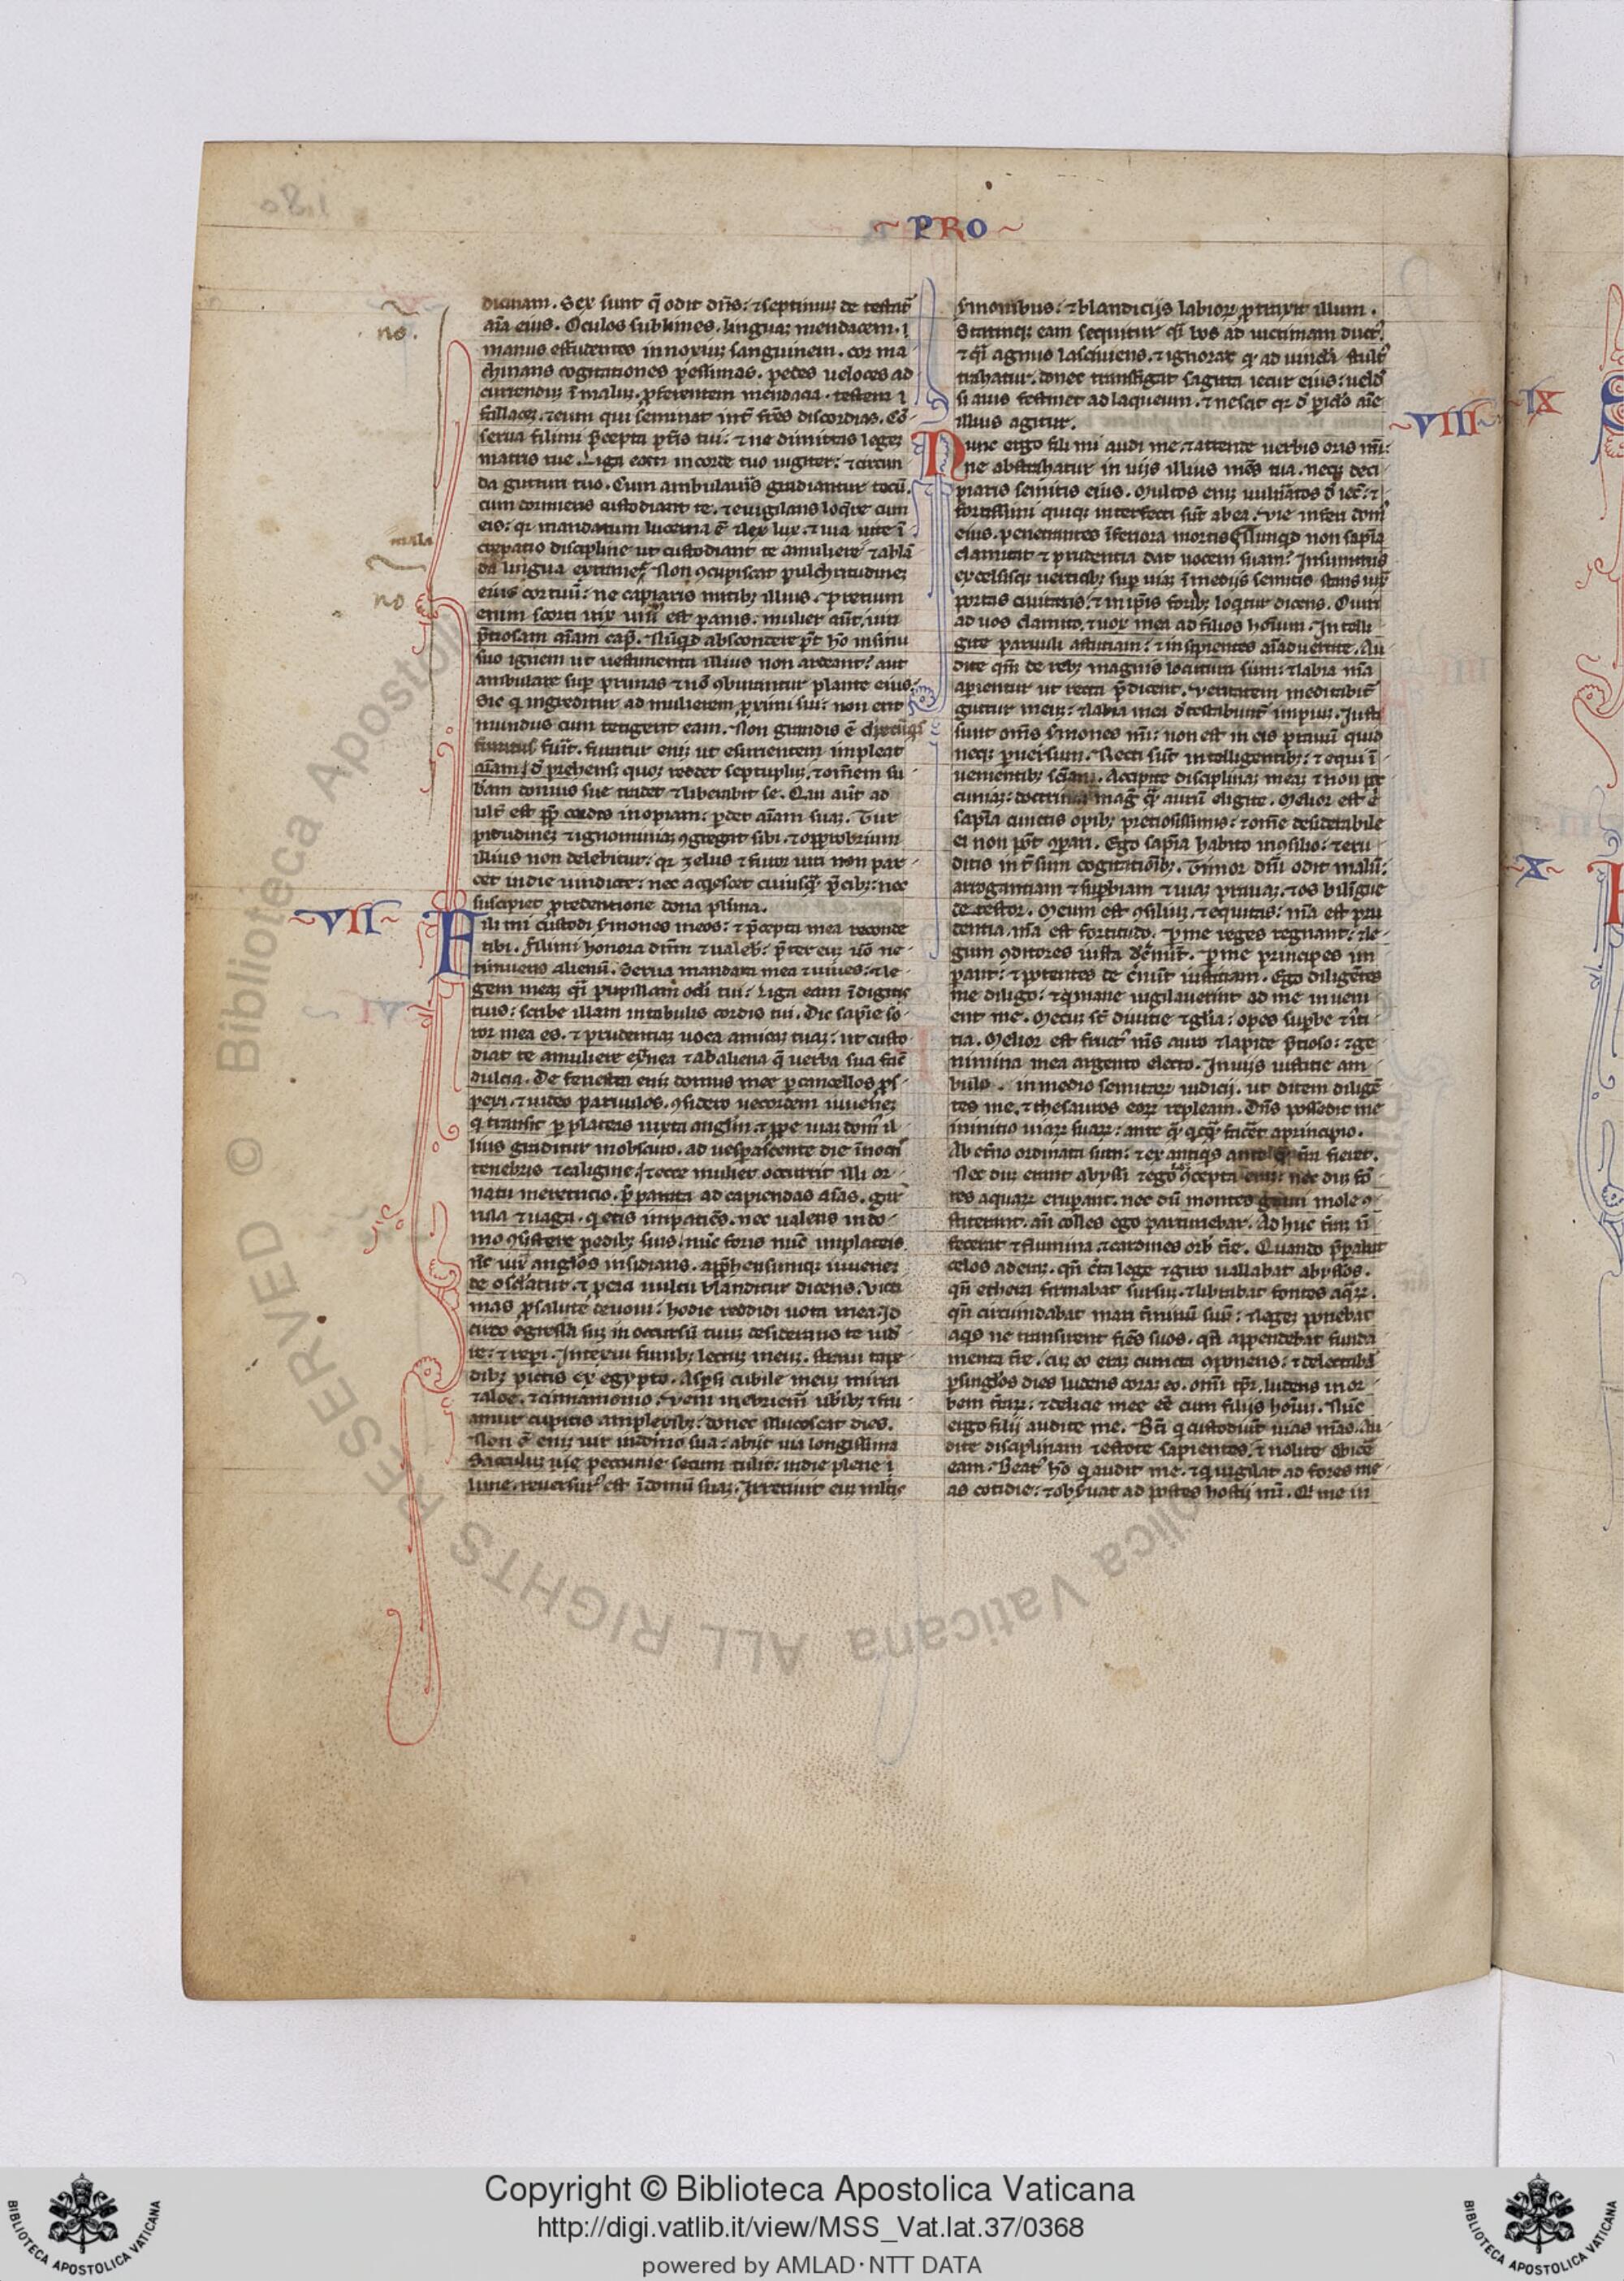 PRO
dicinam. Sex sunt q̃ odit dñs: ⁊ septimuꝫ de testat᷑
aĩa eius. Oculos sublimes. linguaꝫ mendacem. ⁊
manus effundentes innoxiuꝫ sanguinem. cor ma
chinans cogitationes pessimas. pedes ueloces ad
currenduꝫ ĩ maluꝫ. ꝓferentem mendacia. testem
fallaceꝫ. ⁊ eum qui seminat int᷑ fr̃es discordias. Cõ
serua fili mi p̃cepta pr̃is tui: ⁊ ne dimittas legeꝫ
matris tue. Liga ea in corde tuo iugiter: ⁊ circun
da gutturi tuo. Cum ambulaũis gradiantur tecũ.
cum dormieris custodiant te. ⁊ euigilans loq̃re cum
eis: qr mandatum lucerna ẽ ⁊ lex lux. ⁊ uia uite ĩ
crepatio discipline ut custodiant te a muliere mala ⁊ a blã
da lingua extranee. Non ꝯcupiscat pulchritudineꝫ
eius cor tuũ: ne capiaris nutibꝫ illius. pretium
enim scorti uix uniꝰ est panis: mulier aũt uiri
p̃tiosam aĩam cap̃. Nũqd abscondere pt̃ hõ in sinu
suo ignem ut uestimenta illius non ardeant: aut
ambulare sup prunas ⁊ nõ ꝯburantur plante eius.
Sic q ingreditur ad mulierem ꝓximi sui: non erit
mundus cum tetigerit eam. Non grandis ẽ
furatus fuĩt. furatur eniꝫ ut esurientem impleat
aĩam. dep̃hensꝰ quoqꝫ reddet septupluꝫ. ⁊ omẽm su
bam domus sue tradet ⁊ liberabit se. Qui aũt ad
ult̃ est ꝓpt̃ cordis inopiam: ꝑdet aĩam suaꝫ. Tur
pitudineꝫ ⁊ ignominiaꝫ ꝯgregat sibi. ⁊ opprobrium
illius non delebitur: qr zelus ⁊ furor uiri non par
cet in die uindicte: nec acq̃escet cuiusq̃ p̃cibꝫ: nec
suscipiet ꝓ redemptione dona plima.
VII
Fili mi custodi ſmones meos: ⁊ p̃cepta mea reconde
tibi. Fili mi honora dñm ⁊ ualebˢ: p̃ter euꝫ uõ ne
timueris alienũ. Serua mandata mea ⁊ uiues: ⁊ le
gem meaꝫ q̃i pupillam oc̃li tui: Liga eam ĩ digitis
tuis: scribe illam in tabulis cordis tui. Dic sapĩe so
ror mea es. ⁊ prudentiaꝫ uoca amicaꝫ tuaꝫ: ut custo
diat te a muliere ext̃nea ⁊ ab aliena q̃ uerba sua facĩ
dulcia. De fenestra eniꝫ domus mee ꝑ cancellos ꝓs
pexi. ⁊ uideo paruulos. ꝯsidero uecordem iuueneꝫ
q transit ꝑ plateas iuxta anglm̃. ⁊ ꝓpe uiaꝫ domꝰ il
lius graditur in obscuro. ad uesꝑascente die ĩ noctꝰ
tenebris ⁊ caligine. ⁊ ecce mulier occurrit illi or
natu meretricio. p̃parata ad capiendas aĩas. gar
rula ⁊ uaga. q̃etis impatiẽs. nec ualens in do
mo ꝯsistere pedibꝫ suis. nũc foris nũc in plateis.
nũc iux̃ anglos insidians. app̃hensumqꝫ iuueneꝫ
de osclatur. ⁊ pcaci uultu blanditur dicens. Victi
mas ꝓ salute deuoui: hodie reddidi uota mea. Id
circo eg̃ssa suꝫ in occursũ tuuꝫ desiderans te uidẽ
re: ⁊ repi. Intexui funibꝫ lectuꝫ meuꝫ. straui tape
dibꝫ pictis ex egypto. Asꝑsi cubile meuꝫ mirra
⁊ aloe. ⁊ cinnamomo. veni inebriemꝰ ubĩbꝫ ⁊ fru
amur cupitis amplexibꝫ: donec illucescat dies.
Non ẽ eniꝫ uir in domo sua: abiit uia longissima
Sacculuꝫ pecunie secum tulit: in die plene
lune. reuersurꝰ est ĩ domũ suaꝫ. Irretiuit euꝫ mltis
ſmonibus: ⁊ blandiciis labioꝝ ꝓtraxit illum.
Statimqꝫ eam sequitur q̃i bos ad uictimam ductꝰ
⁊ q̃i agnus lasciuiens. ⁊ ignorat qꝫ ad uincla stultꝰ
trahatur. donec transfigat sagitta iecur eius: uelud
si auis festinet ad laqueum. ⁊ nescit qr d̃ ꝑiclo aĩe
illius agitur.
VIII
Nunc ergo fili mi audi me. ⁊ attende uerbis oris mĩ:
ne abstrahatur in uiis illius mẽs tua. neqꝫ deci
piaris semitis eius. Multos eniꝫ uulñatos deiec̃: ⁊
fortissimi quiqꝫ interfecti sũt ab ea. vie inferi domꝰ
eius. penetrantes ĩteriora mortis. Nunqd non sapĩa
clamitat ⁊ prudentia dat uocem suam? In summis
excelsisqꝫ uerticibꝫ sup uiaꝫ ĩ mediis semitis stans iux̃
portas ciuitatis. ⁊ in ip̃is foribꝫ loqtur dicens. O uiri
ad uos clamito. ⁊ uox mea ad filios hoĩum. Intelli
gite paruuli astutiam: ⁊ insipientes aĩaduertite. Au
dite qm̃ de rebꝫ magnis locutura sum: ⁊ labia mĩa
aperientur ut recta p̃dicent. Veritatem meditabit᷑
guttur meuꝫ: ⁊ labia mea d̃testabunt᷑ impiuꝫ. Justi
sunt oms̃ ſmones mĩ: non est in eis prauũ quid
neqꝫ ꝑuersum. Recti sũt intelligentibꝫ: ⁊ equi ĩ
uenientibꝫ sciam̃. Accipite disciplinaꝫ meaꝫ ⁊ non pe
cuniaꝫ: doctrinã mag̃ q̃ auruꝫ eligite. Melior est ẽ
sapĩa cunctis opibꝫ pretiosissimis: ⁊ om̃e desiderabile
ei non põt ꝯpari. Ego sapĩa habito in ꝯsilio: ⁊ eru
ditis int̃sum cogitatiõibꝫ. Timor dñi odit malũ:
arrogantiam ⁊ suꝑbiam ⁊ uiaꝫ prauaꝫ. ⁊ os bilingue
detestor. Meum est ꝯsiliuꝫ. ⁊ equitas: mĩa est pru
dentia. mĩa est fortitudo. ꝑ me reges regnant: ⁊ le
gum ꝯditores iusta dc̃ernũt. ꝑ me principes im
perant: ⁊ potentes dec̃nũt iustitiam. Ego diligẽtes
me diligo: ⁊ q mane uigilauerint ad me inueni
ent me. Mecuꝫ st̃ diuitie ⁊ glĩa: opes suꝑbe ⁊ iusti
tia. Melior est fructꝰ mꝰs auro ⁊ lapide p̃tioso: ⁊ ge
nimina mea argento electo. In uiis iustitie am
bulo. in medio semitaꝝ iudicii. ut ditem diligẽ
tes me. ⁊ thesauros eoꝝ repleam. Dñs possedit me
in initio uiaꝝ suaꝝ: ante q̃ qcq̃ facẽt a principio.
Ab et̃no ordinata sum: ⁊ ex antiqs ante q̃ tr̃a fieret.
Nec duꝫ erant abyssi ⁊ ego ꝯcepta eram: nec duꝫ fõ
tes aquaꝝ eruperant. nec dũ montes graui mole ꝯ
stiterant. añ colles ego parturiebar. Adhuc tr̃am ñ
fecerat ⁊ flumina. ⁊ cardines orbꝰ tr̃e. Quando p̃parabat
celos aderaꝫ. qñ c̃ta lege ⁊ giro uallabat abyssos.
qñ ethera firmabat sursuꝫ. ⁊ librabat fontes aq̃ꝝ.
qñ circundabat mari t̃minũ suũ: ⁊ legeꝫ ponebat
aqs ne transirent fiẽs suos. qñ appendebat funda
menta tr̃e. cuꝫ eo eraꝫ cuncta ꝯponens: ⁊ delectabar
ꝑ singlos dies ludens coraꝫ eo. omĩ tꝑr. ludens in or
bem tr̃aꝝ: ⁊ delicie mee eẽ cum filiis hoĩuꝫ. Nũc
ergo filii audite me. Bt̃i q custodiũt uias mẽas. Au
dite disciplinam ⁊ estote sapientes. ⁊ nolite abicẽ
eam. Beatꝰ hõ q audit me. ⁊ q uigilat ad fores me
as cotidie: ⁊ obſuat ad postes hostii mĩ. Q me in
no.
mala
no
IX
X
© Biblioteca Apostolica Vaticana ALL RIGHTS RESERVED
Copyright © Biblioteca Apostolica Vaticana
http://digi.vatlib.it/view/MSS_Vat.lat.37/0368
powered by AMLAD·NTT DATA
BIBLIOTECA APOSTOLICA VATICANA
BIBLIOTECA APOSTOLICA VATICANA